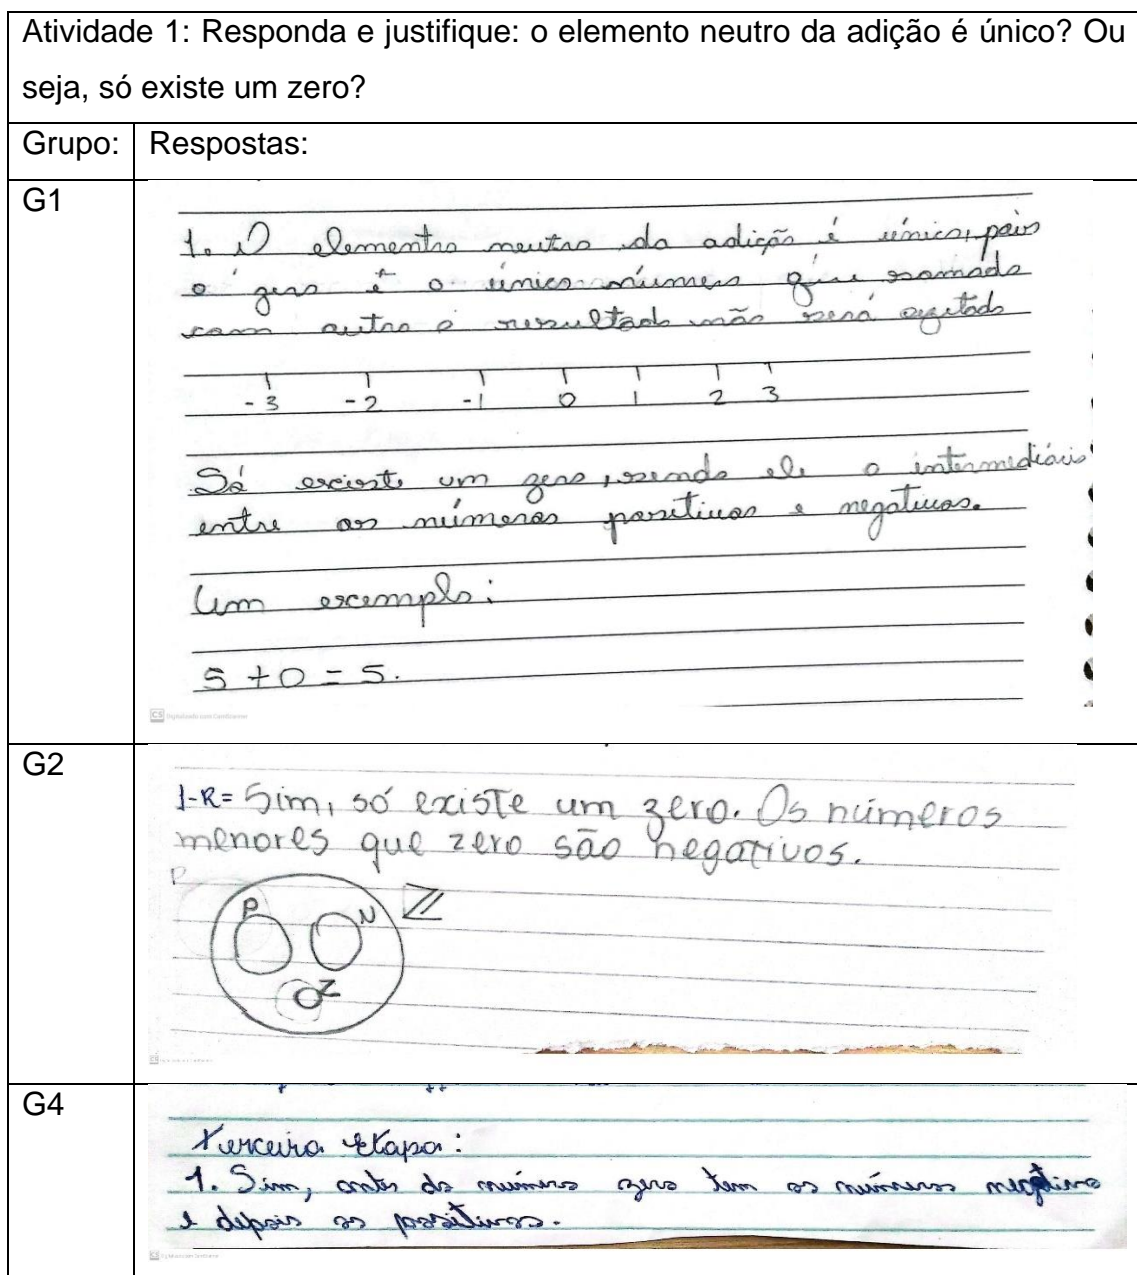 Atividade 1: Responda e justifique: o elemento neutro da adição é único? Ou
seja, só existe um zero?
Grupo: Respostas:
G1
1. O elemento neutro da adição é único, pois
o zero é o único número que somado
com outro o resultado não será
-3 -2 -1 0 1 2 3
Só existe um zero, sendo ele o intermediário
entre os números positivos e negativos.
Um exemplo:
5 + 0 = 5.
CS Digitalizado com CamScanner
G2
1-R= Sim, só existe um zero. Os números
menores que zero são negativos.
P
P N Z
Z
G4
Terceira etapa:
1. Sim, antes do número zero tem os números negativos
e depois os positivos.